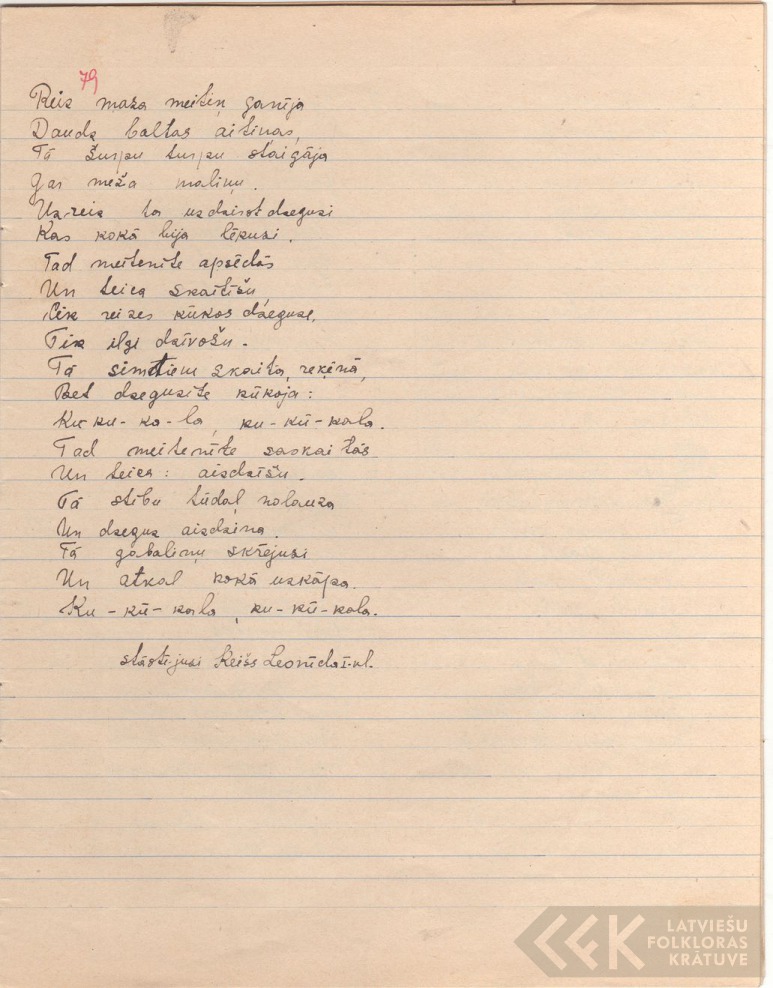 79
Reiz maza meitiņ ganīja
Daudz baltas aitiņas,
Tā šurpu turpu staigāja
Gar meža maliņu.
Uzreiz ta uzdzirst dzegusi
Kas kokā bija lēkusi.
Tad meitenīte apsēdās
Un teica skaitīšu,
Cik reizes kūkos dzeguze,
Tik ilgi dzīvošu.
Tā simtiem skaita, reķinā,
Bet dzeguzīte kūkoja:
Ku-kū-ko-lo, ku-kū-kolo.
Tad meitenīte saskaitās
Un teica: aizdzīšu.
Tā stibu tūdaļ nolauza
Un dzeguz aizdzina.
Tā gabaliņu skrējusi
Un atkal kokā uzkāpa.
Ku-kū-kolo, ku-kū-kolo.
stāstijusi Leonīda
LATVIEŠU
FOLKLORAS
KRĀTUVE